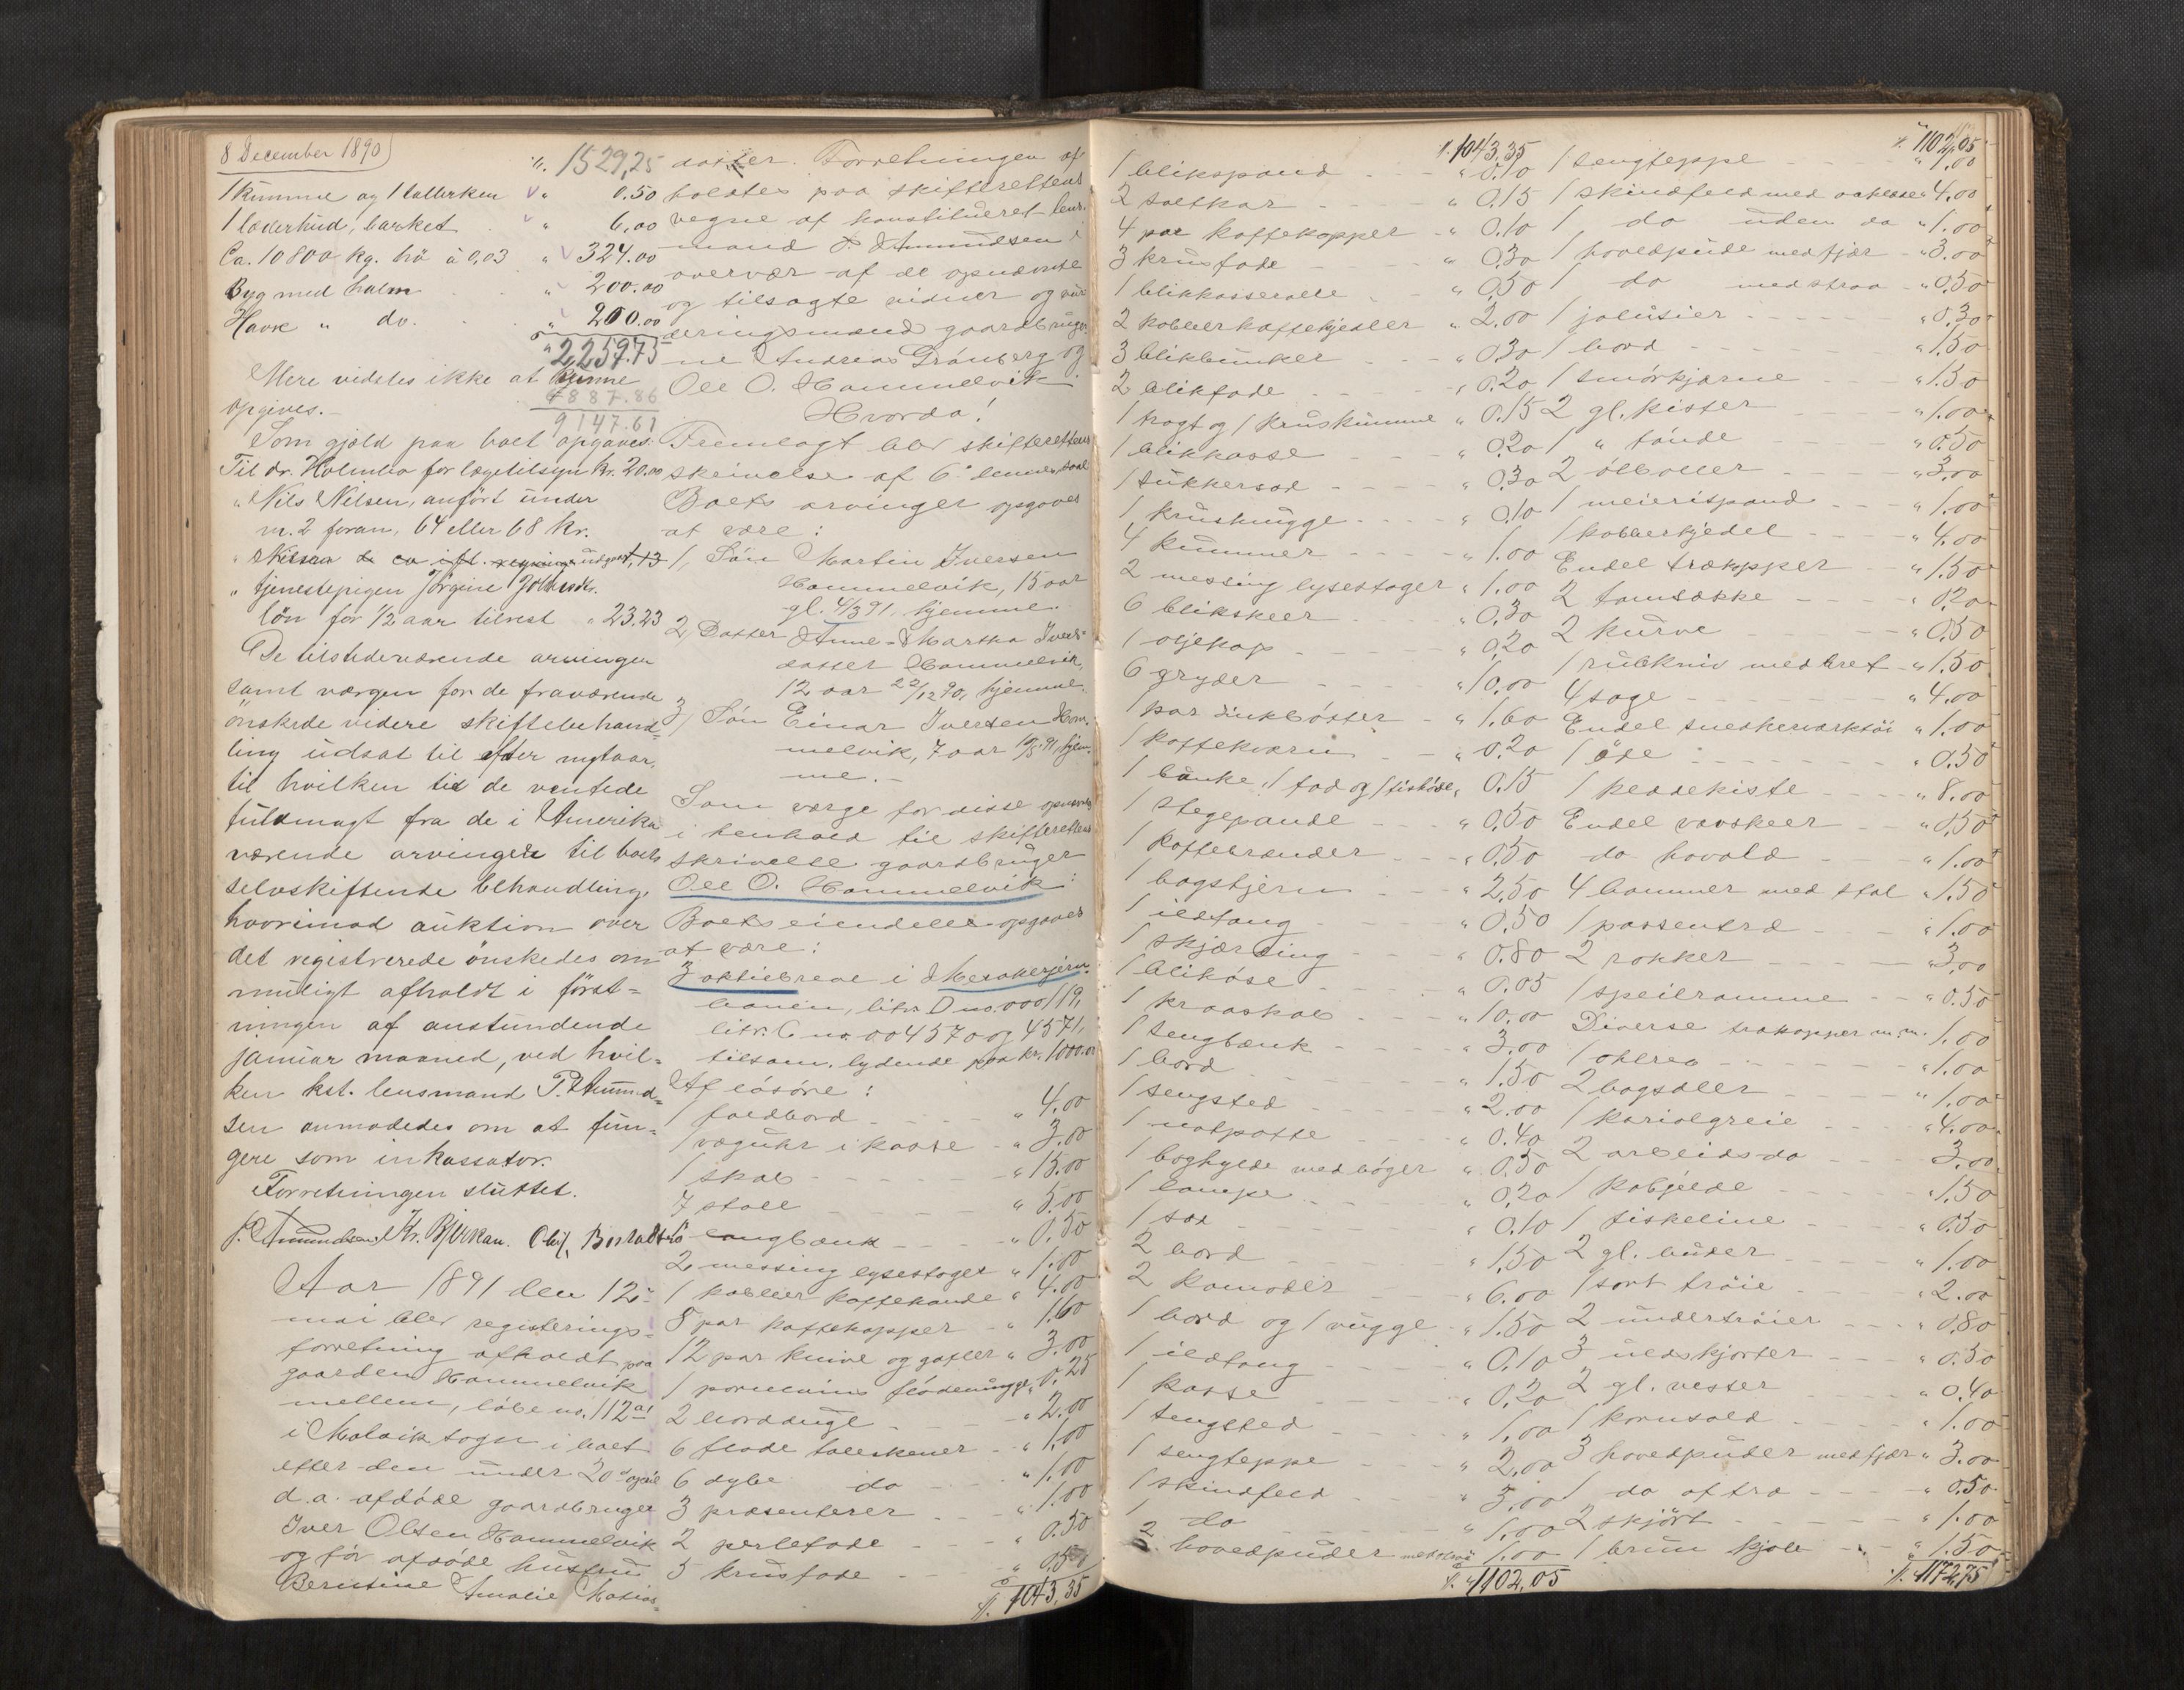 8 December 1890
" 1529,25
1 kumme og 1 tallerken " 0.50
1 læderhud, barket " 6,00
Ca. 10800 kg. hö à 0,03 " 324.00
Byg med halm " 200.00
Havre " do. " 200.00
" 2,259.75
Mere vidstes ikke at kunne
6887.86
opgives.
9147.61
Som gjæld paa boet opgaves:
Til dr. Holmboe for lægetilsyn kr. 20.00
" Nils Nilsen, anfört under
m. 2 foran, 64 eller 68 kr.
" tjenestepigen Jörgine
lön for 1/2 aar tilrest " 23.23
De tilstedeværende arvinger
samt værgen for de fraværende
önskede videre skiftebehand=
ling udsat til efter nytaar,
til hvilken tid de ventede
fuldmagt fra de i Amerika
værende arvinger til boets
selvskiftende behandling,
hvorimod auktion over
det registrerede önskedes om
muligt afholdt i först=
ningen af anstundende
januar maaned, ved hvil=
ken kst. lensmand P. Amund=
sen anmodedes om at fun=
gere som inkassator.
Forretningen sluttet.
P. Amundsen. Kr. Bjerkan.
Aar 1891 den 12te
mai blev registerings-
forretning afholdt paa
gaarden Hommelvik
mellem, löbe no. 112 a1
i Malvik sogn i boet
efter den under 20de april
d.a. afdöde gaardbruger
Iver Olsen Hommelvik
og för afdöde hustru
Berntine Amalie Matias-
datter. Forretningen af
holdtes paa skifterettens
vegne af konstitueret lens-
mand P. Amundsen i
overvær af de opnævnte
og tilsagte vidner og vur
deringsmænd gaardbruger
ne Andreas Grönberg og
Ole O. Hommelvik
Hvorda!
Fremlagt blev skifterettens
skrivelse af 6te dennes
Boets arvinger opgaves
at være:
1, Sön Martin Iversen
Hommelvik, 15 aar
gl. 4/3 91, hjemme.
2, Datter Anne Martha Ivers-
datter Hommelvik,
12 aar 22/12 90, hjemme.
3, Sön Einar Iversen Hom-
melvik, 7 aar 19/5 91, hjem-
me.-
Som værge for disse opnævntes
i henhold til skifterettens
skrivelse gaardbruger
Ole O. Hommelvik:
Boets eiendele opgaves
at være:
3 aktiebreve i Merakerjern-
banen, litr. D no. 000119,
litr. C no. 004570 og 4571,
tilsam. lydende paa kr. 1000.00
Af lösöre:
1 foldbord " 4.00
1 væguhr i kasse " 3.00
1 skab " 15.00
7 stole " 5.00
1 langbænk " 0.50
2 messing lysestager " 1.00
1 kobber kaffekande " 4.00
8 par kaffekopper " 1.60
12 par knive og gafler " 3.00
1 porcelæns flödemugge " 0.25
2 borddug " 2.00
6 flade tallerkener " 1.00
6 dybe do " 1.00
3 præsenterer " 1.00
2 perlefade " 0.50
5 krusfade " 0.50
1043,35
1043,35
1 blikspand " 0.10
2 saltkar " 0.15
4 par kaffekopper " 0.10
3 krusfade " 0.30
1 blikkasserolle " 0,50
2 kobberkaffekjedler " 2.00
3 blikbunker " 0.30
2 blikfade " 0.20
1 tragt og 1 kruskumme " 0.15
1 blikkasse " 0.20
1 sukkersax " 0.30
1 krusmugge " 0.10
4 kummer " 1.00
2 messing lysestager " 1.00
6 blikskeer " 0.30
1 oljekop " 0,20
6 gryder " 10.00
1 par zinkbötter " 1.60
1 kaffekværn " 0.20
1 bunke, 1 fad og 1 " 0.15
1 stegepande " 0,50
1 kaffebrænder " 0.50
1 bagstjern " 2,50
1 ildtang " 0.50
1 skjærding " 0.80
1 bliköse " 0.05
1 kraaskab " 10.00
1 sengbænk " 3.00
1 bord " 1.50
1 sengsted " 2.00
1 natpotte " 0.40
1 boghylde med böger " 0.50
1 lampe " 0,20
1 sax " 0.10
2 bord " 1,50
2 komoder " 6.00
1 bord og 1 vugge " 1.50
1 ildtang " 0.10
1 kasse " 0.20
1 sengsted " 1.00
1 sengteppe " 2,00
1 skindfeld " 3.00
1 do " 1.00
2 hovedpuder med straa 1.00
1102,05
1102,05
1 sengteppe " 1.00
1 skindfeld med aaklæde " 4.00
1 do uden do " 1.00
1 hovedpude med fjær " 3.00
1 do med straa " 0,50
1 jalusier " 0,30
1 bord " 1.50
1 smörkjærne " 1.50
2 gl. kister " 1.00
1 " tönde " 0.50
2 ölboller " 3,00
1 meierispand " 1.00
1 kobberkjedel " 4.00
Endel trækopper " 1.50
2 tomsække " 0,20
2 kurve " 0,50
1 rulkniv med bret " 1.50
4 sage " 4.00
Endel snedkerværktöi " 1.00
1 öxe " 0.50
1 reddekiste " 8.00
Endel vævskeer " 0,50
do hovold " 1.00
4 bommer med stol " 1,50
1 passentræ " 1.00
2 rokker " 3,00
1 speilramme " 0.50
Diverse trækopper m.m. 1.00
1 " 1.00
2 bagsæler " 1.00
1 kariolgreie " 4.00
2 arbeids-do 3.00
1 kobjelde " 1.50
1 fiskeline " 0.50
2 gl. buxer " 1.00
1 sort tröie " 2.00
2 undertröier " 0,80
3 uldskjorter " 0.50
2 gl. vester " 0.40
1 kornsold " 1.00
3 hovedpuder med fjær " 3.00
1 do af " 0.50
2 skjört " 1.00
1 brun kjole " 1.50
1172,75